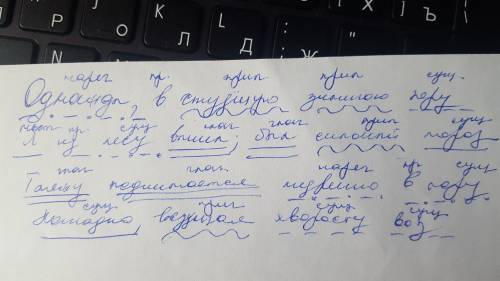 К Л Ъ
О Д Ж
нареч пр. прил прил сущ.
Однажды, в студёную зимнюю пору
мест пр. сущ глаг глаг прил сущ
Я из лесу вышел; был сильный мороз
глаг глаг нареч пр сущ
Гляжу поднимается медленно в гору.
сущ прил сущ сущ
Лошадка везущая хворосту воз